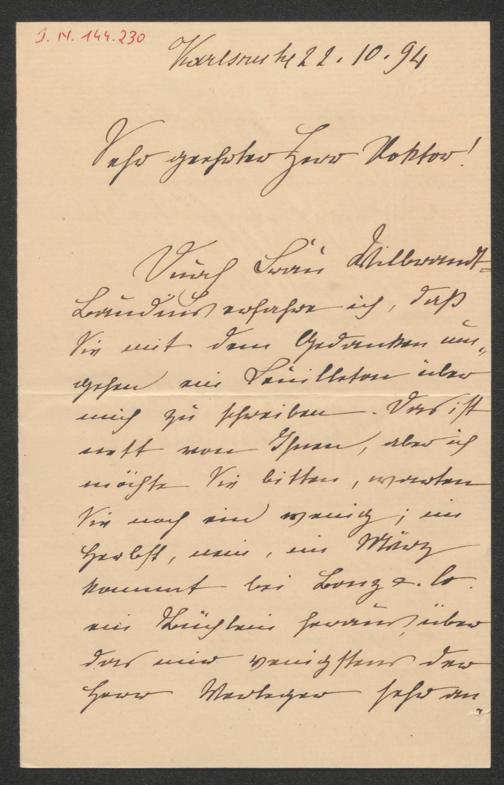 J. N. 144.230
Karlsruhe 22.10.94
Sehr geehrter Herr Doktor!
Durch Frau Wilbrandt-
Baudius erfahre ich, daß
Sie mit dem Gedanken um„
gehen ein Feuilleton über
mich zu schreiben. Das ist
nett von Ihnen, aber ich
möchte Sie bitten, warten
Sie noch ein wenig; im
Herbst, nein, im März
kommt bei Bonz & Co.
ein Büchlein heraus, über
das mir wenigstens der
Herr Verleger sehr an„